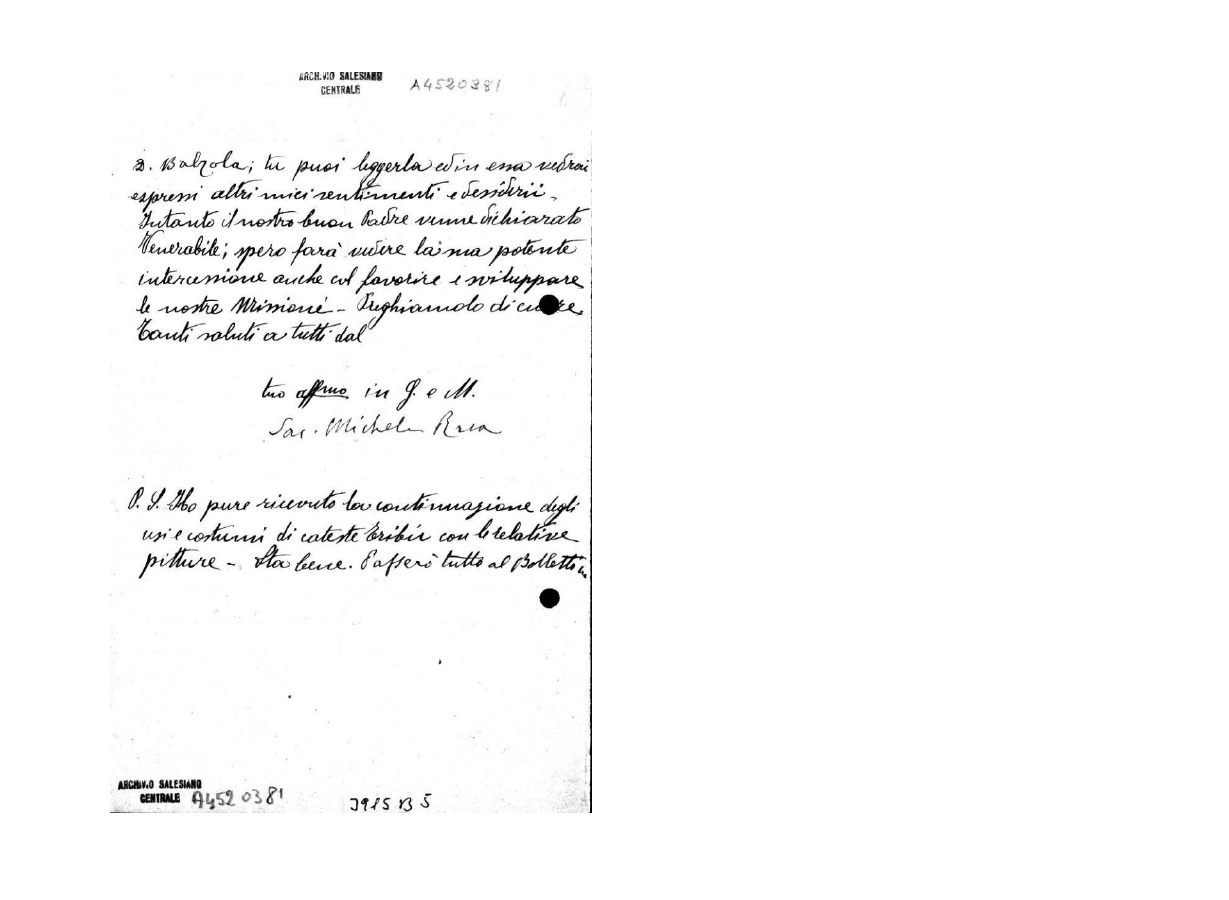 ARCHIVIO SALESIANO
CENTRALE
A4520381
D. Balzola; tu puoi leggerla ed in essa vedrai
espressi altri miei sentimenti e dessiderii -
Intanto il nostro buon Padre venne dichiarato
Venerabile; spero farà vedere la sua potente
intercessione anche col favorire e sviluppare
le nostre Missioni - Preghiamolo di cuore.
Tanti saluti a tutti dal
tuo affmo in G. e M.
Sac. Michele Rua
P. S. Ho pure ricevuto la continuazione degli
usi e costumi di cateste tribù con le relative
pitture - Sta bene. Passerò tutto al Bollettin
ARCHIVIO SALESIANO
CENTRALE
A4520381
3915 B 5